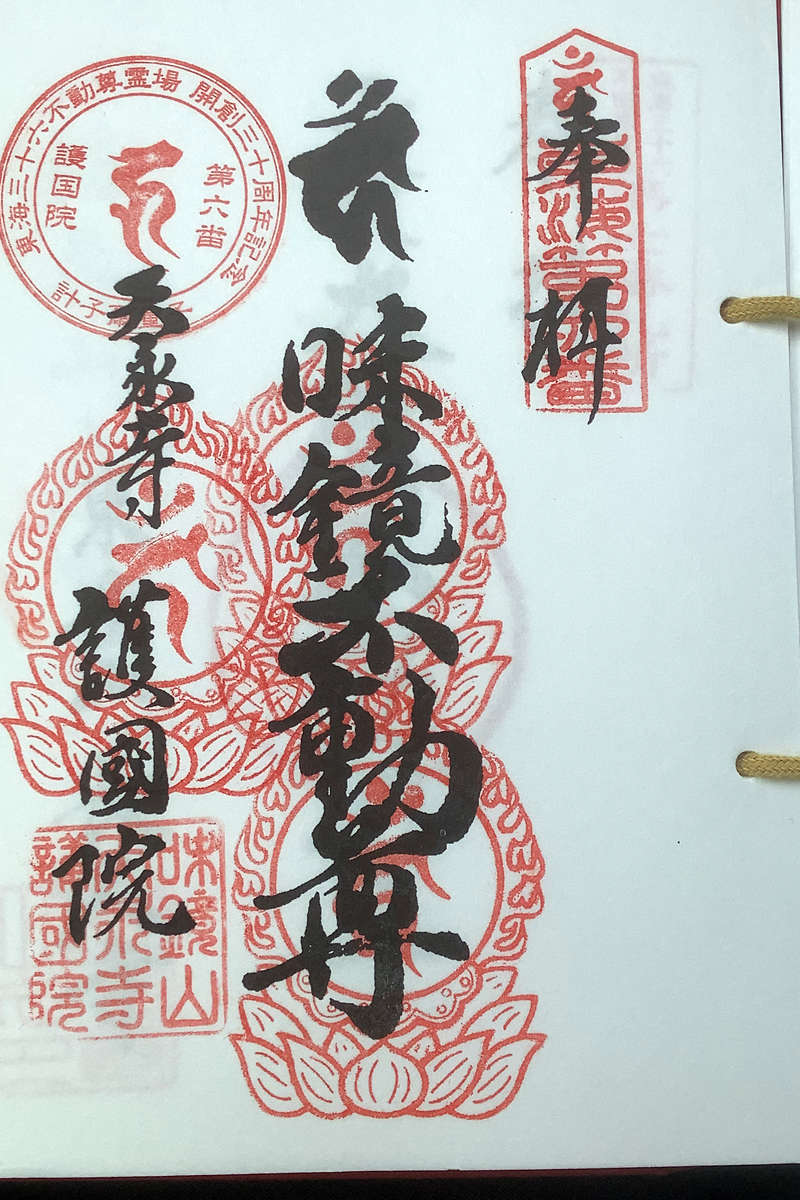 奉拝
味鏡不動尊
天永寺
護國院
東海三十六不動尊霊場 開創三十周年記念
第六番
護国院
味鏡山
天永寺
護國院